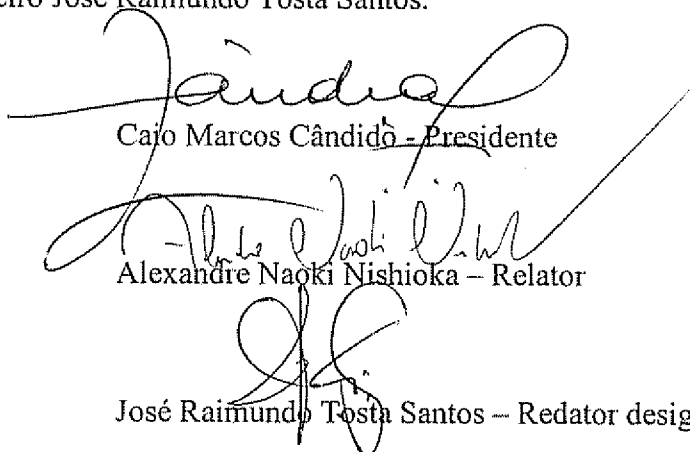 José Raimundo Tosta Santos.
Cândido
Caio Marcos Cândido - Presidente
Alexandre Naoki Nishioka – Relator
José Raimundo Tosta Santos – Redator desig